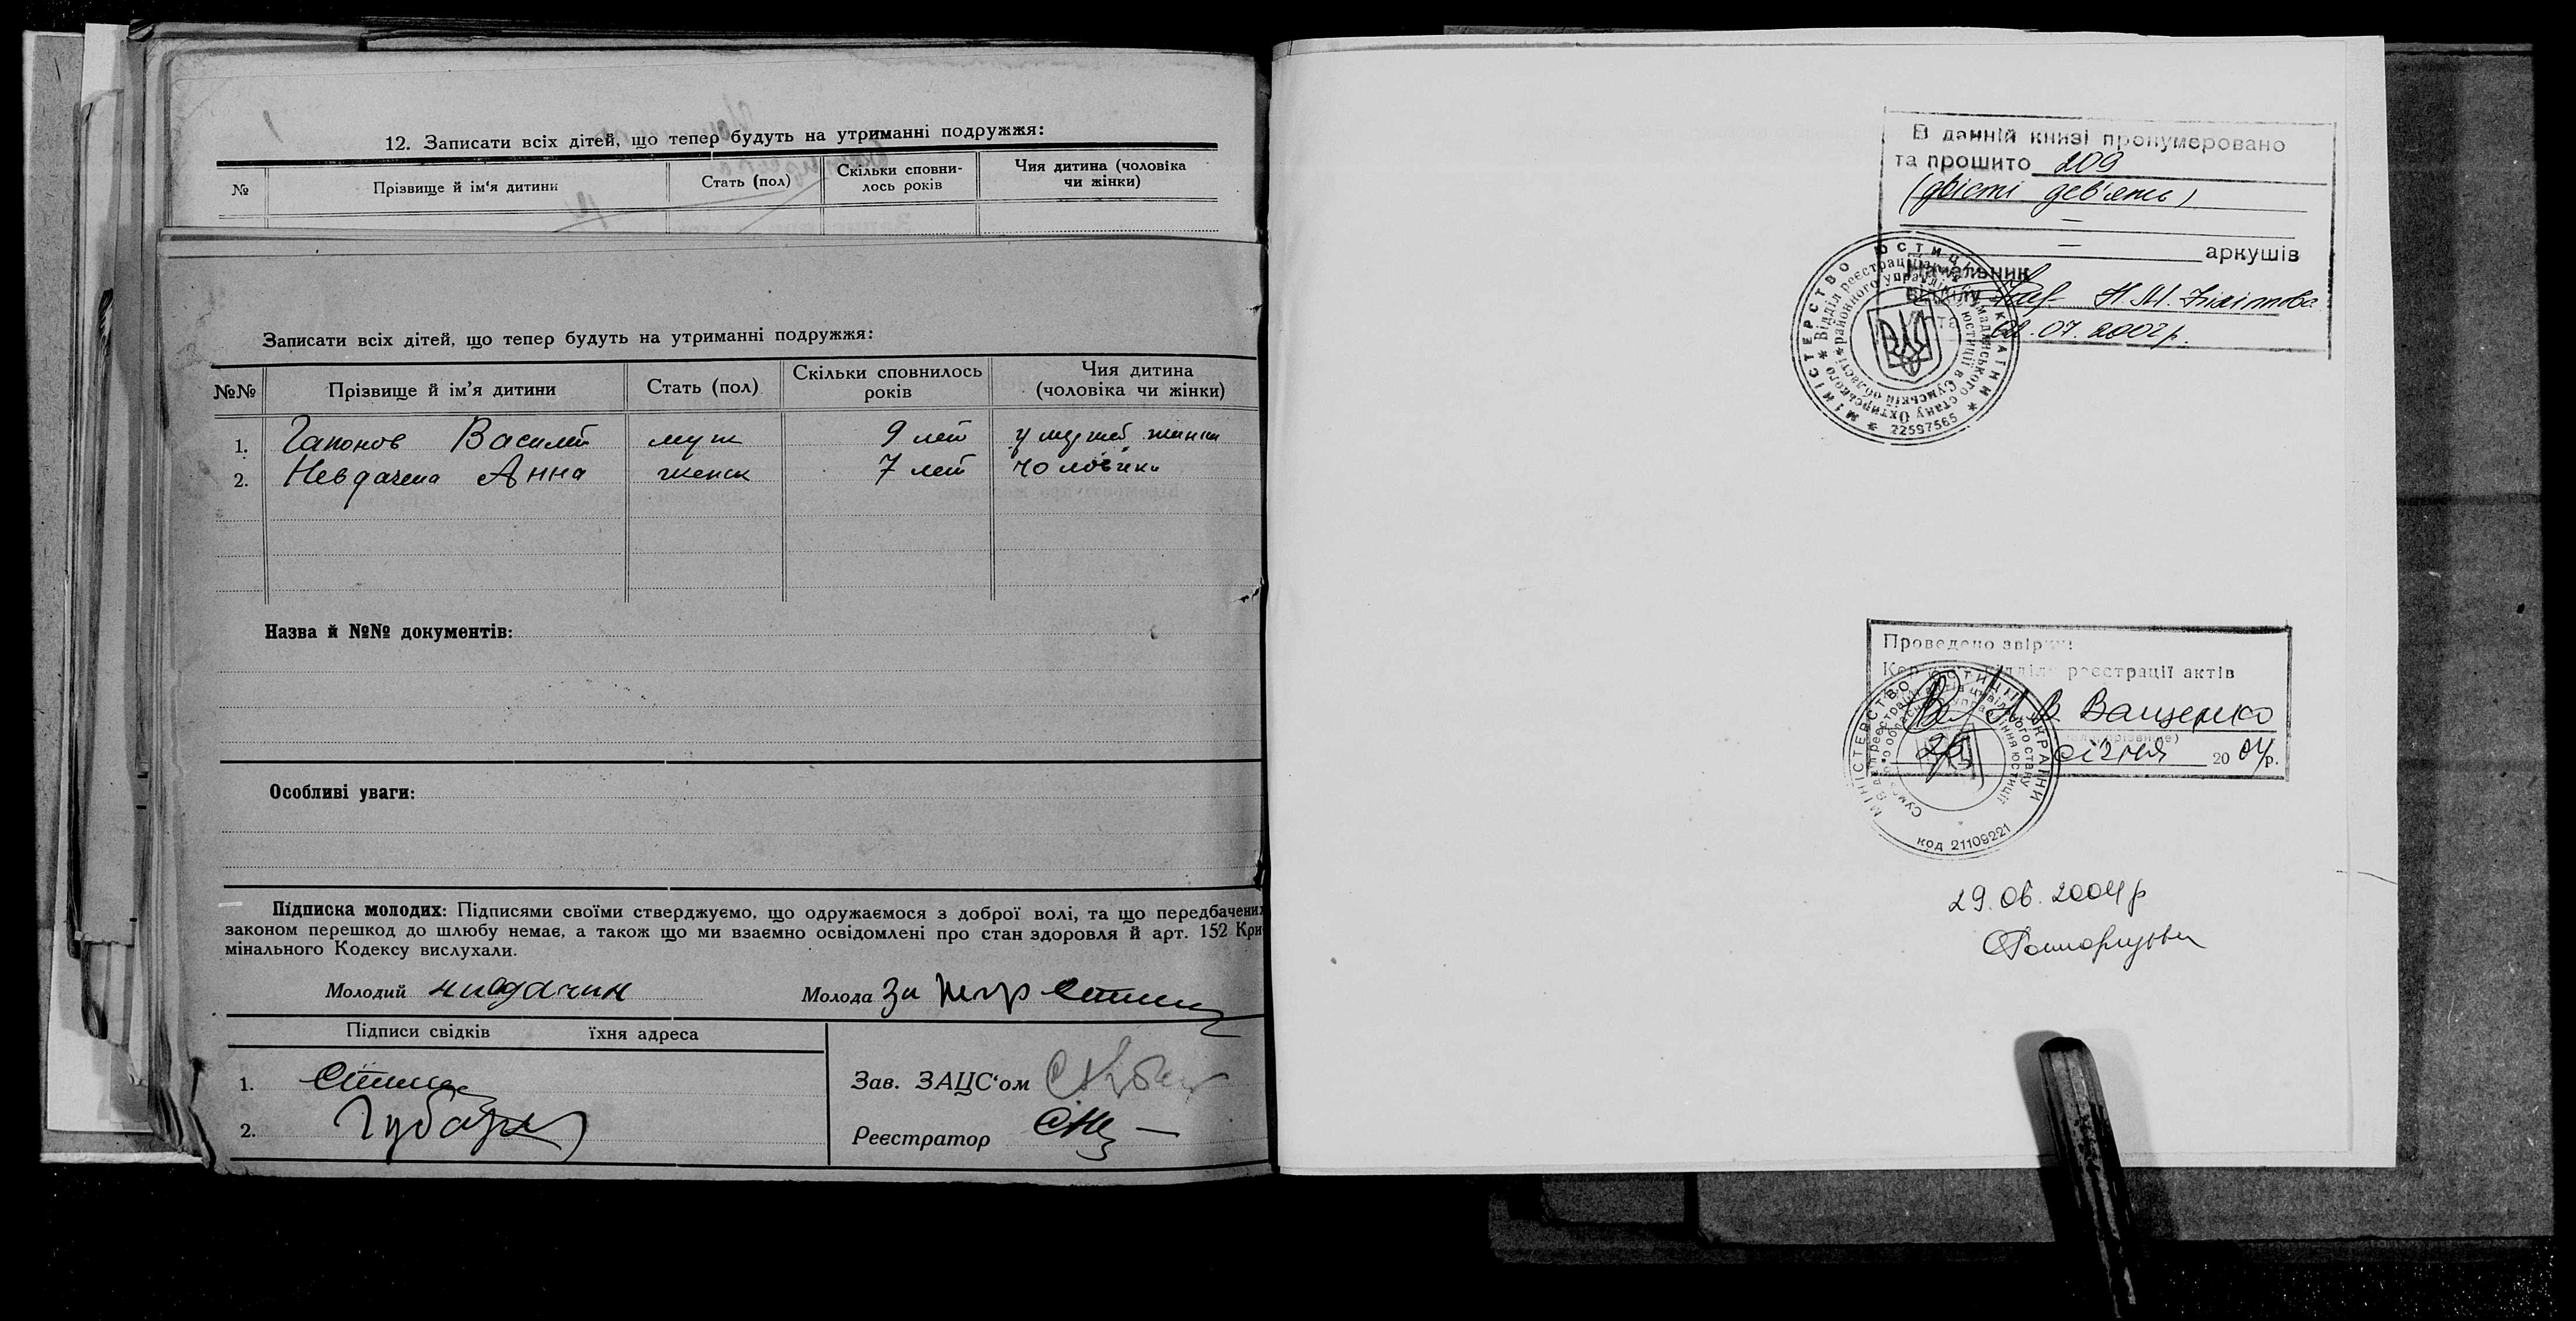 12. Записати всіх дітей, що тепер будуть на утриманні подружжя:
№ Прізвище й ім'я дитини Стать (пол) Скільки сповни-лось років Чия дитина (чоловіка чи жінки)
Записати всіх дітей, що тепер будуть на утриманні подружжя:
№№ Прізвище й ім'я дитини Стать (пол) Скільки сповнилось років Чия дитина (чоловіка чи жінки)
1. Гапонов Василий муж 9 лет жинки
2. Невдачена Анна женск 7 лет чоловіка
Назва й №№ документів:
Особливі уваги:
Підписка молодих: Підписями своїми стверджуємо, що одружаємося з доброї волі, та що передбачених
законом перешкод до шлюбу немає, а також що ми взаємно освідомлені про стан здоровля й арт. 152 Кри-
мінального Кодексу вислухали.
Молодий нивдачин Молода За
Підписи свідків їхня адреса
1.
2. Губарь
Зав. ЗАЦС'ом
Реєстратор
В данній книзі пронумеровано
та прошито 209
(двісті дев'ять)
аркушів
Начальник
відділу Н.М.
07. 2002 р.
МІНІСТЕРСТВО ЮСТИЦІЇ УКРАЇНИ
Відділ реєстрації актів громадянського стану Охтирського
районного управління юстиції в Сумській області
22597565
Проведено звірку
відділу реєстрації актів
Л В Ващенко
26 січня 2004р.
МІНІСТЕРСТВО ЮСТИЦІЇ УКРАЇНИ
код 21109221
29.06.2004р